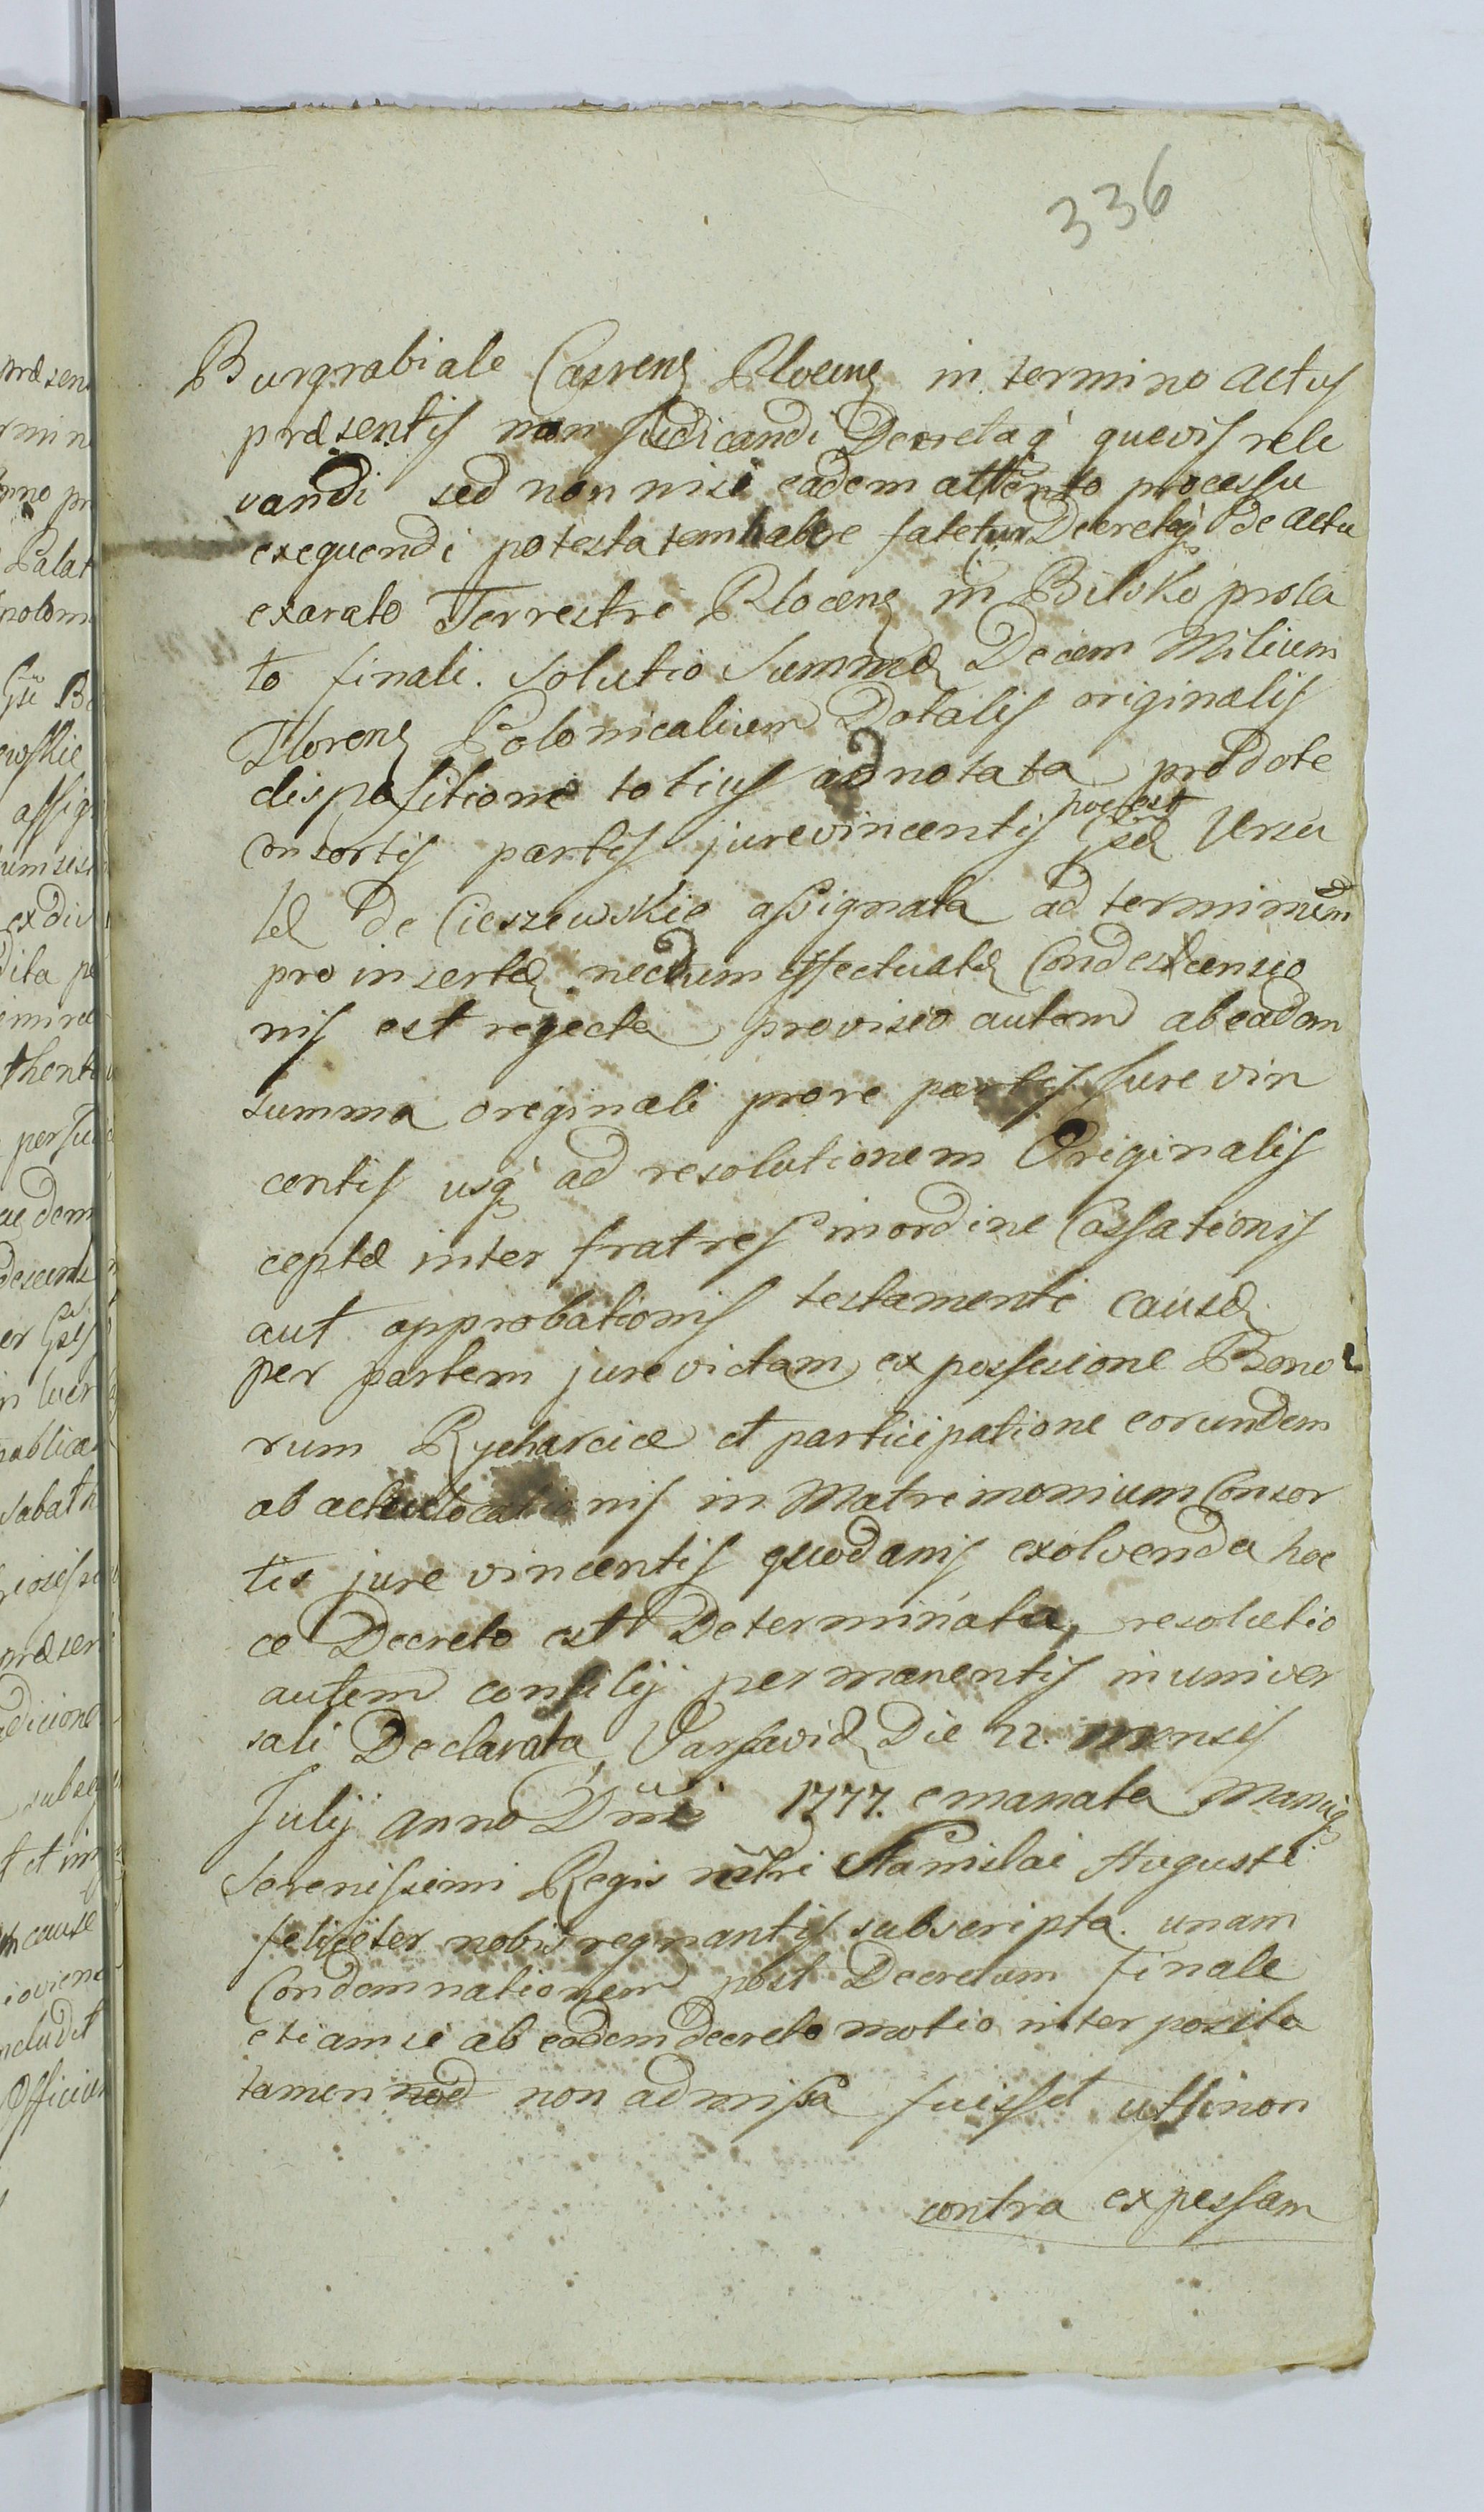 336
Burgrabiale Castrens Plocens in termino actus
præsentis non Judicandi Decretaq' quevis rele
vandi sed non nisi eadem attento processu
exequendi potestatem habere fatetur Decretoq' de actu
exarato Terrestre Plocens in Bilsko prola
to finali. Solutio Summæ Decem Milium
Florens Polonicalium Dotalis originalis
dispositione totius adnotata pro dote
Consortis partis jurevincentis hoc est Gsæ Ursu
læ de Cieszewskie assignata ad terminum
pro insertæ necdum effectuatæ Condescensio
nis est rejecta proviseo autem ab eadem
summa originali prore partis Jure vin
centis usq' ad resolutionem Originalis
ceptæ inter fratres in ordine Cassationis
aut approbationis testamenti causæ
per partem jure victam ex possesione Bono
rum Rycharcice et participatione eorundem
ab actu locationis in Matrimonium Consor
tis jure vincentis quodanis exolvenda hoc
ce Decreto est Determinata, resolutio
autem consilij permanentis in univer
sali Declarata, Varsaviæ Die 22. mensis
Julij anno Dni 1777. emanata Manuq
Serenissimi Regis nstri Stanislai Augusti
feliciter nobis regnantis subscripta. unam
Condemnationem post Decretum finale
etiamsi ab eodem decreto motio interposita
tamen non admissa fuisset utsi non
contra expessam
præsen
Palat
ewskie
assig
ex div
dita pe
thent
ædem
descens
publica
Sabath
præsen
adicione
subse
et in
cause
includit
Officiu